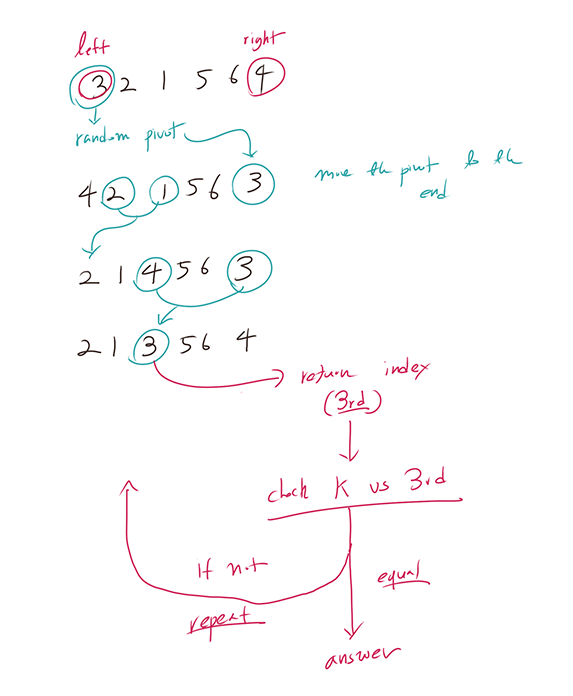 left right
3 2 1 5 6 4
random pivot
4 2 1 5 6 3
move the pivot to the
end
2 1 4 5 6 3
2 1 3 5 6 4
return index
(3rd)
check K vs 3rd
If not
equal
repeat
answer